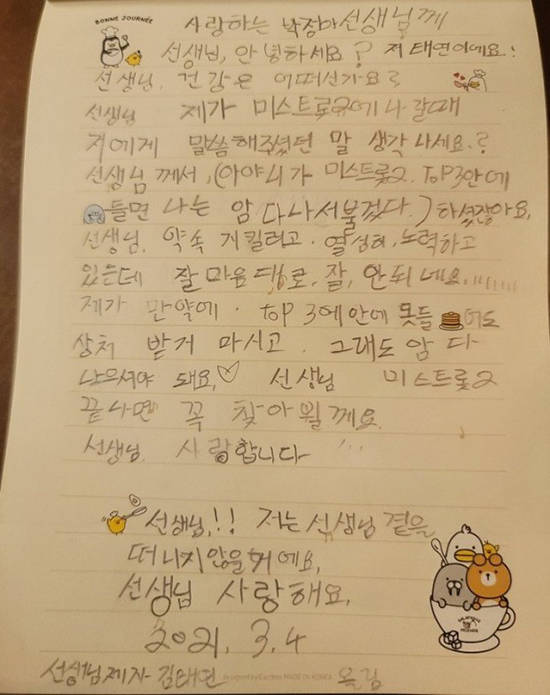 BONNE JOURNÉE
사랑하는 박정아선생님께
선생님, 안녕하세요? 저 태연이에요!
선생님, 건강은 어떠신가요?
선생님 제가 미스트롯2에 나갈때
저에게 말씀해주셨던 말 생각나세요?
선생님께서, (아야 니가 미스트롯2. TOP3안에
들면 나는 암 다나서불겄다.) 하셨잖아요,
선생님, 약속 지킬려고. 열심히, 노력하고
있는데 잘 마음대로, 잘, 안되네요,
제가 만약에. TOP 3에 안에 못들어도
상처 받지 마시고. 그래도 암 다
나으셔야 돼요, 선생님 미스트롯2
끝나면 꼭 찾아뵐께요.
선생님, 사랑합니다
선생님,!! 저는 선생님 곁을
떠나지않을거에요,
선생님 사랑해요,
2021. 3. 4
선생님제자 김태연 올림
MADE IN KOREA